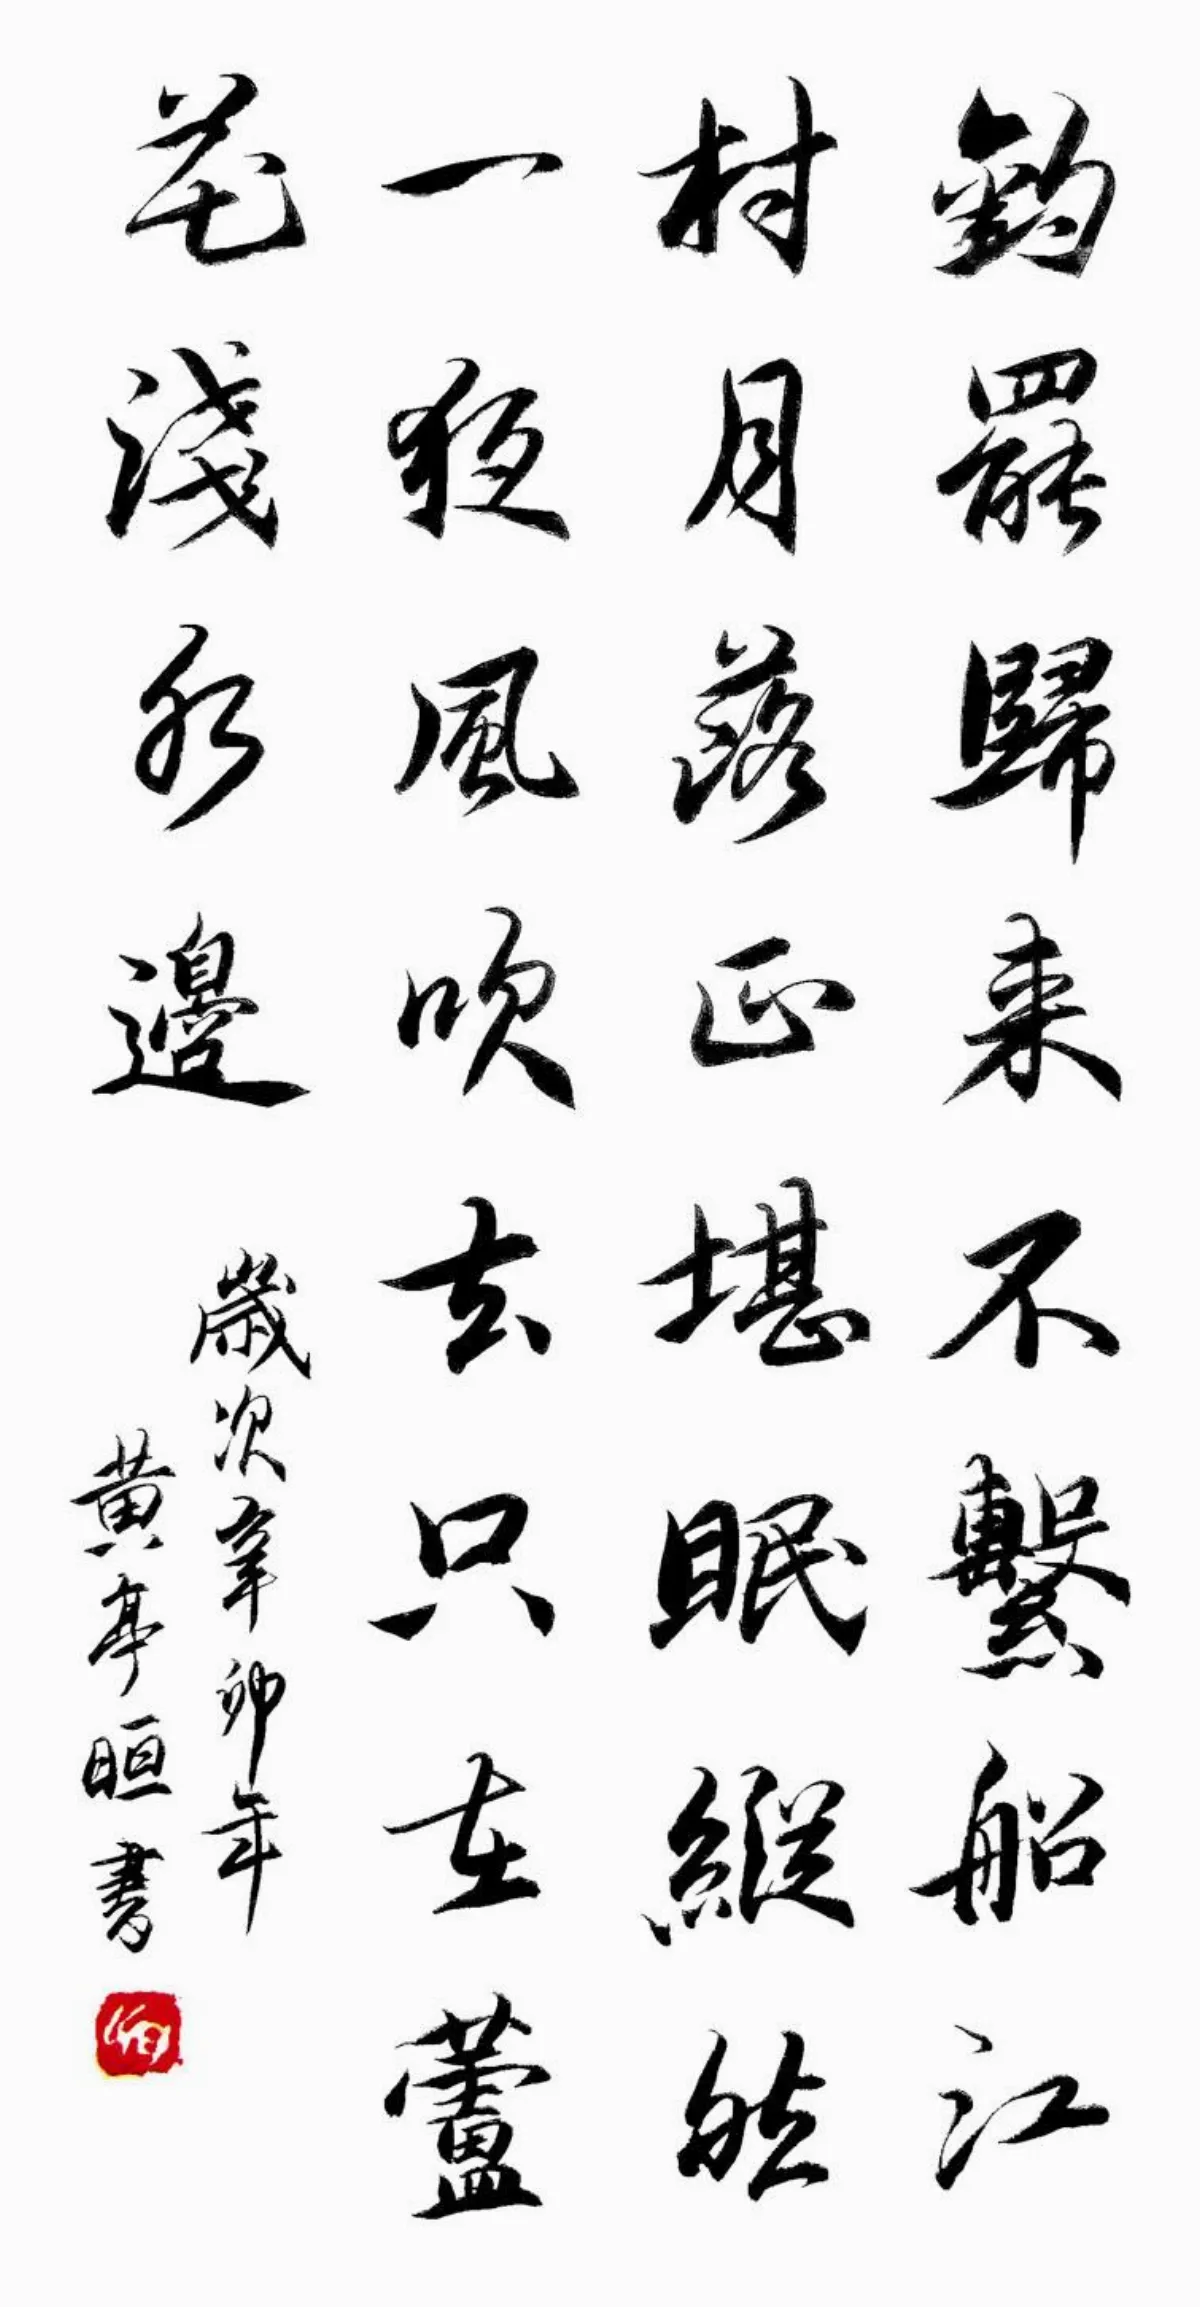 釣罷歸来不繫船江
村月落正堪眠縱然
一夜風吹去只在蘆
花淺水邊
歲次辛卯年
黄亭晅書